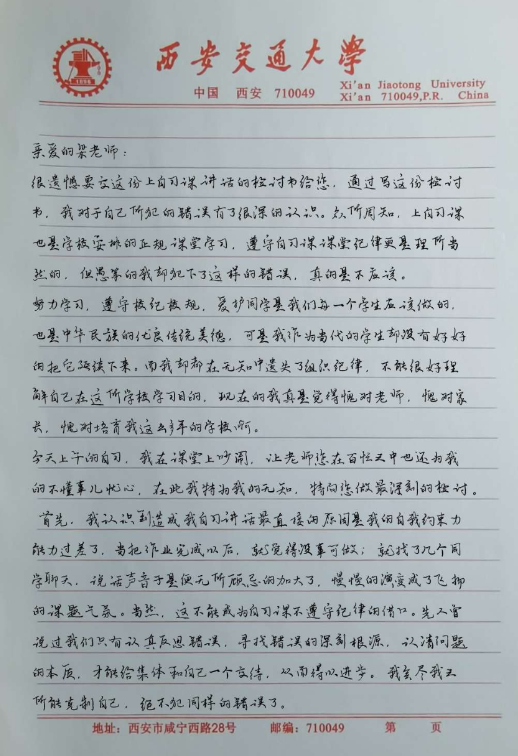 西安交通大学
中国 西安 710049
Xi'an Jiaotong University
Xi'an 710049,P.R. China
1896
亲爱的梁老师：
很遗憾要交这份上自习课讲话的检讨书给您，通过写这份检讨
书，我对于自己所犯的错误有了很深的认识。众所周知，上自习课
也是学校安排的正规课堂学习，遵守自习课课堂纪律更是理所当
然的，但愚笨的我却犯下了这样的错误，真的是不应该。
努力学习，遵守校纪校规，爱护同学是我们每一个学生应该做的，
也是中华民族的优良传统美德，可是我作为当代的学生却没有好好
的把它延续下来。而我却都在无知中遗失了组织纪律，不能很好理
解自己在这所学校学习目的，现在的我真是觉得愧对老师，愧对家
长，愧对培育我这么多年的学校啊。
今天上午的自习，我在课堂上吵闹，让老师您在百忙之中也还为我
的不懂事儿忧心，在此我特为我的无知，特向您做最深刻的检讨。
首先，我认识到造成我自习讲话最直接的原因是我的自我约束力
能力过差了，当把作业完成以后，就觉得没事可做；就找了几个同
学聊天，说话声音于是便无所顾忌的加大了，慢慢的演变成了飞扬
的课题气氛。当然，这不能成为自习课不遵守纪律的借口。先人曾
说过我们只有认真反思错误，寻找错误的深刻根源，认清问题
的本质，才能给集体和自己一个交待，从而得以进步。我会尽我之
所能克制自己，绝不犯同样的错误了。
地址：西安市咸宁西路28号 邮编：710049 第 页